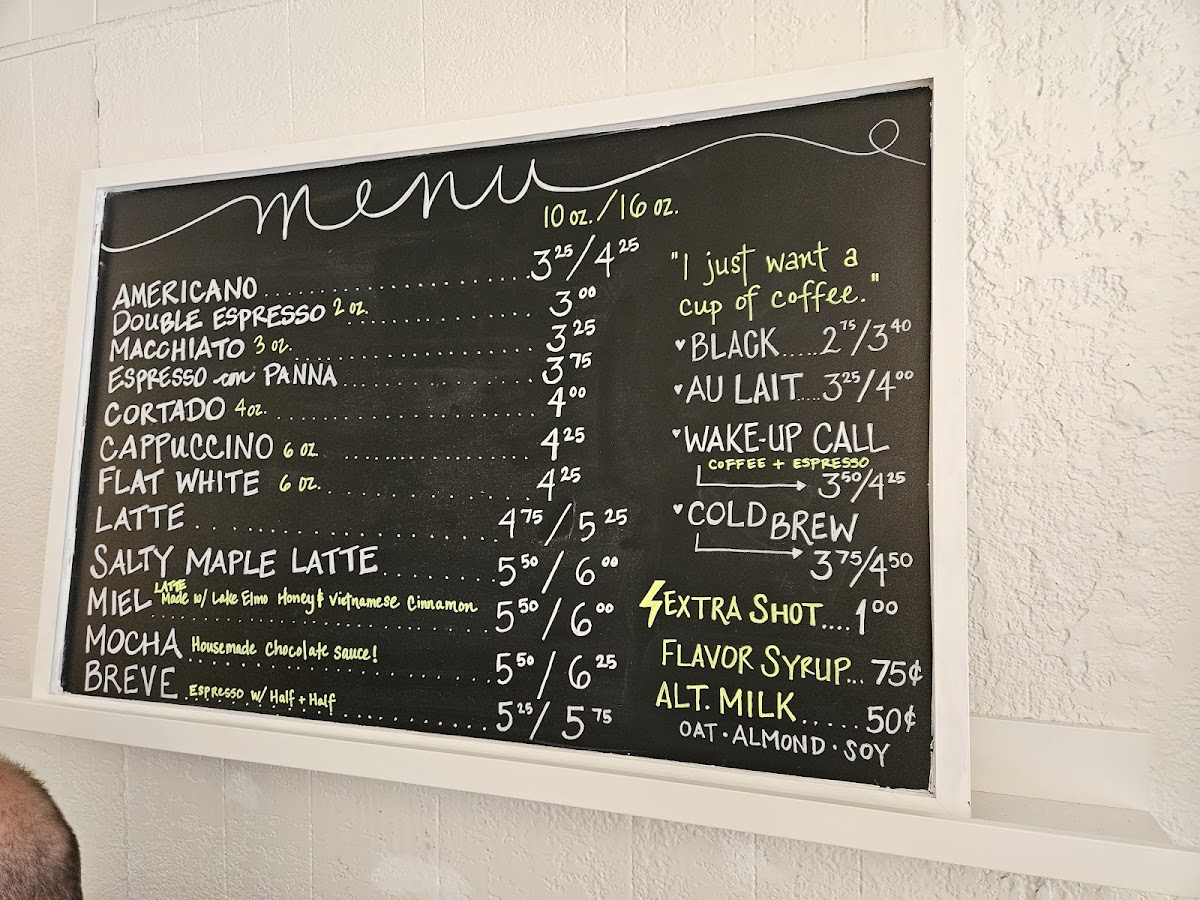 menu
10 oz./16 oz.
AMERICANO.......................3²⁵/4²⁵
DOUBLE ESPRESSO 2 oz. ................ 3⁰⁰
MACCHIATO 3 oz. ...................... 3²⁵
ESPRESSO con PANNA .................. 3⁷⁵
CORTADO 4oz. ........................ 4⁰⁰
CAPPUCCINO 6 oz. .................... 4²⁵
FLAT WHITE 6 oz. .................... 4²⁵
LATTE ....................... 4⁷⁵/5²⁵
SALTY MAPLE LATTE ......... 5⁵⁰/6⁰⁰
MIEL LATTE Made w/ Lake Elmo Honey & Vietnamese Cinnamon ..... 5⁵⁰/6⁰⁰
MOCHA Housemade chocolate sauce! ..... 5⁵⁰/6²⁵
BREVE Espresso w/ Half + Half ..... 5²⁵/5⁷⁵
"I just want a
cup of coffee."
♥BLACK.....2⁷⁵/3⁴⁰
♥AU LAIT....3²⁵/4⁰⁰
♥WAKE-UP CALL
COFFEE + ESPRESSO
3⁵⁰/4²⁵
♥COLD BREW
3⁷⁵/4⁵⁰
EXTRA SHOT....1⁰⁰
FLAVOR SYRUP... 75¢
ALT. MILK......50¢
OAT • ALMOND • SOY